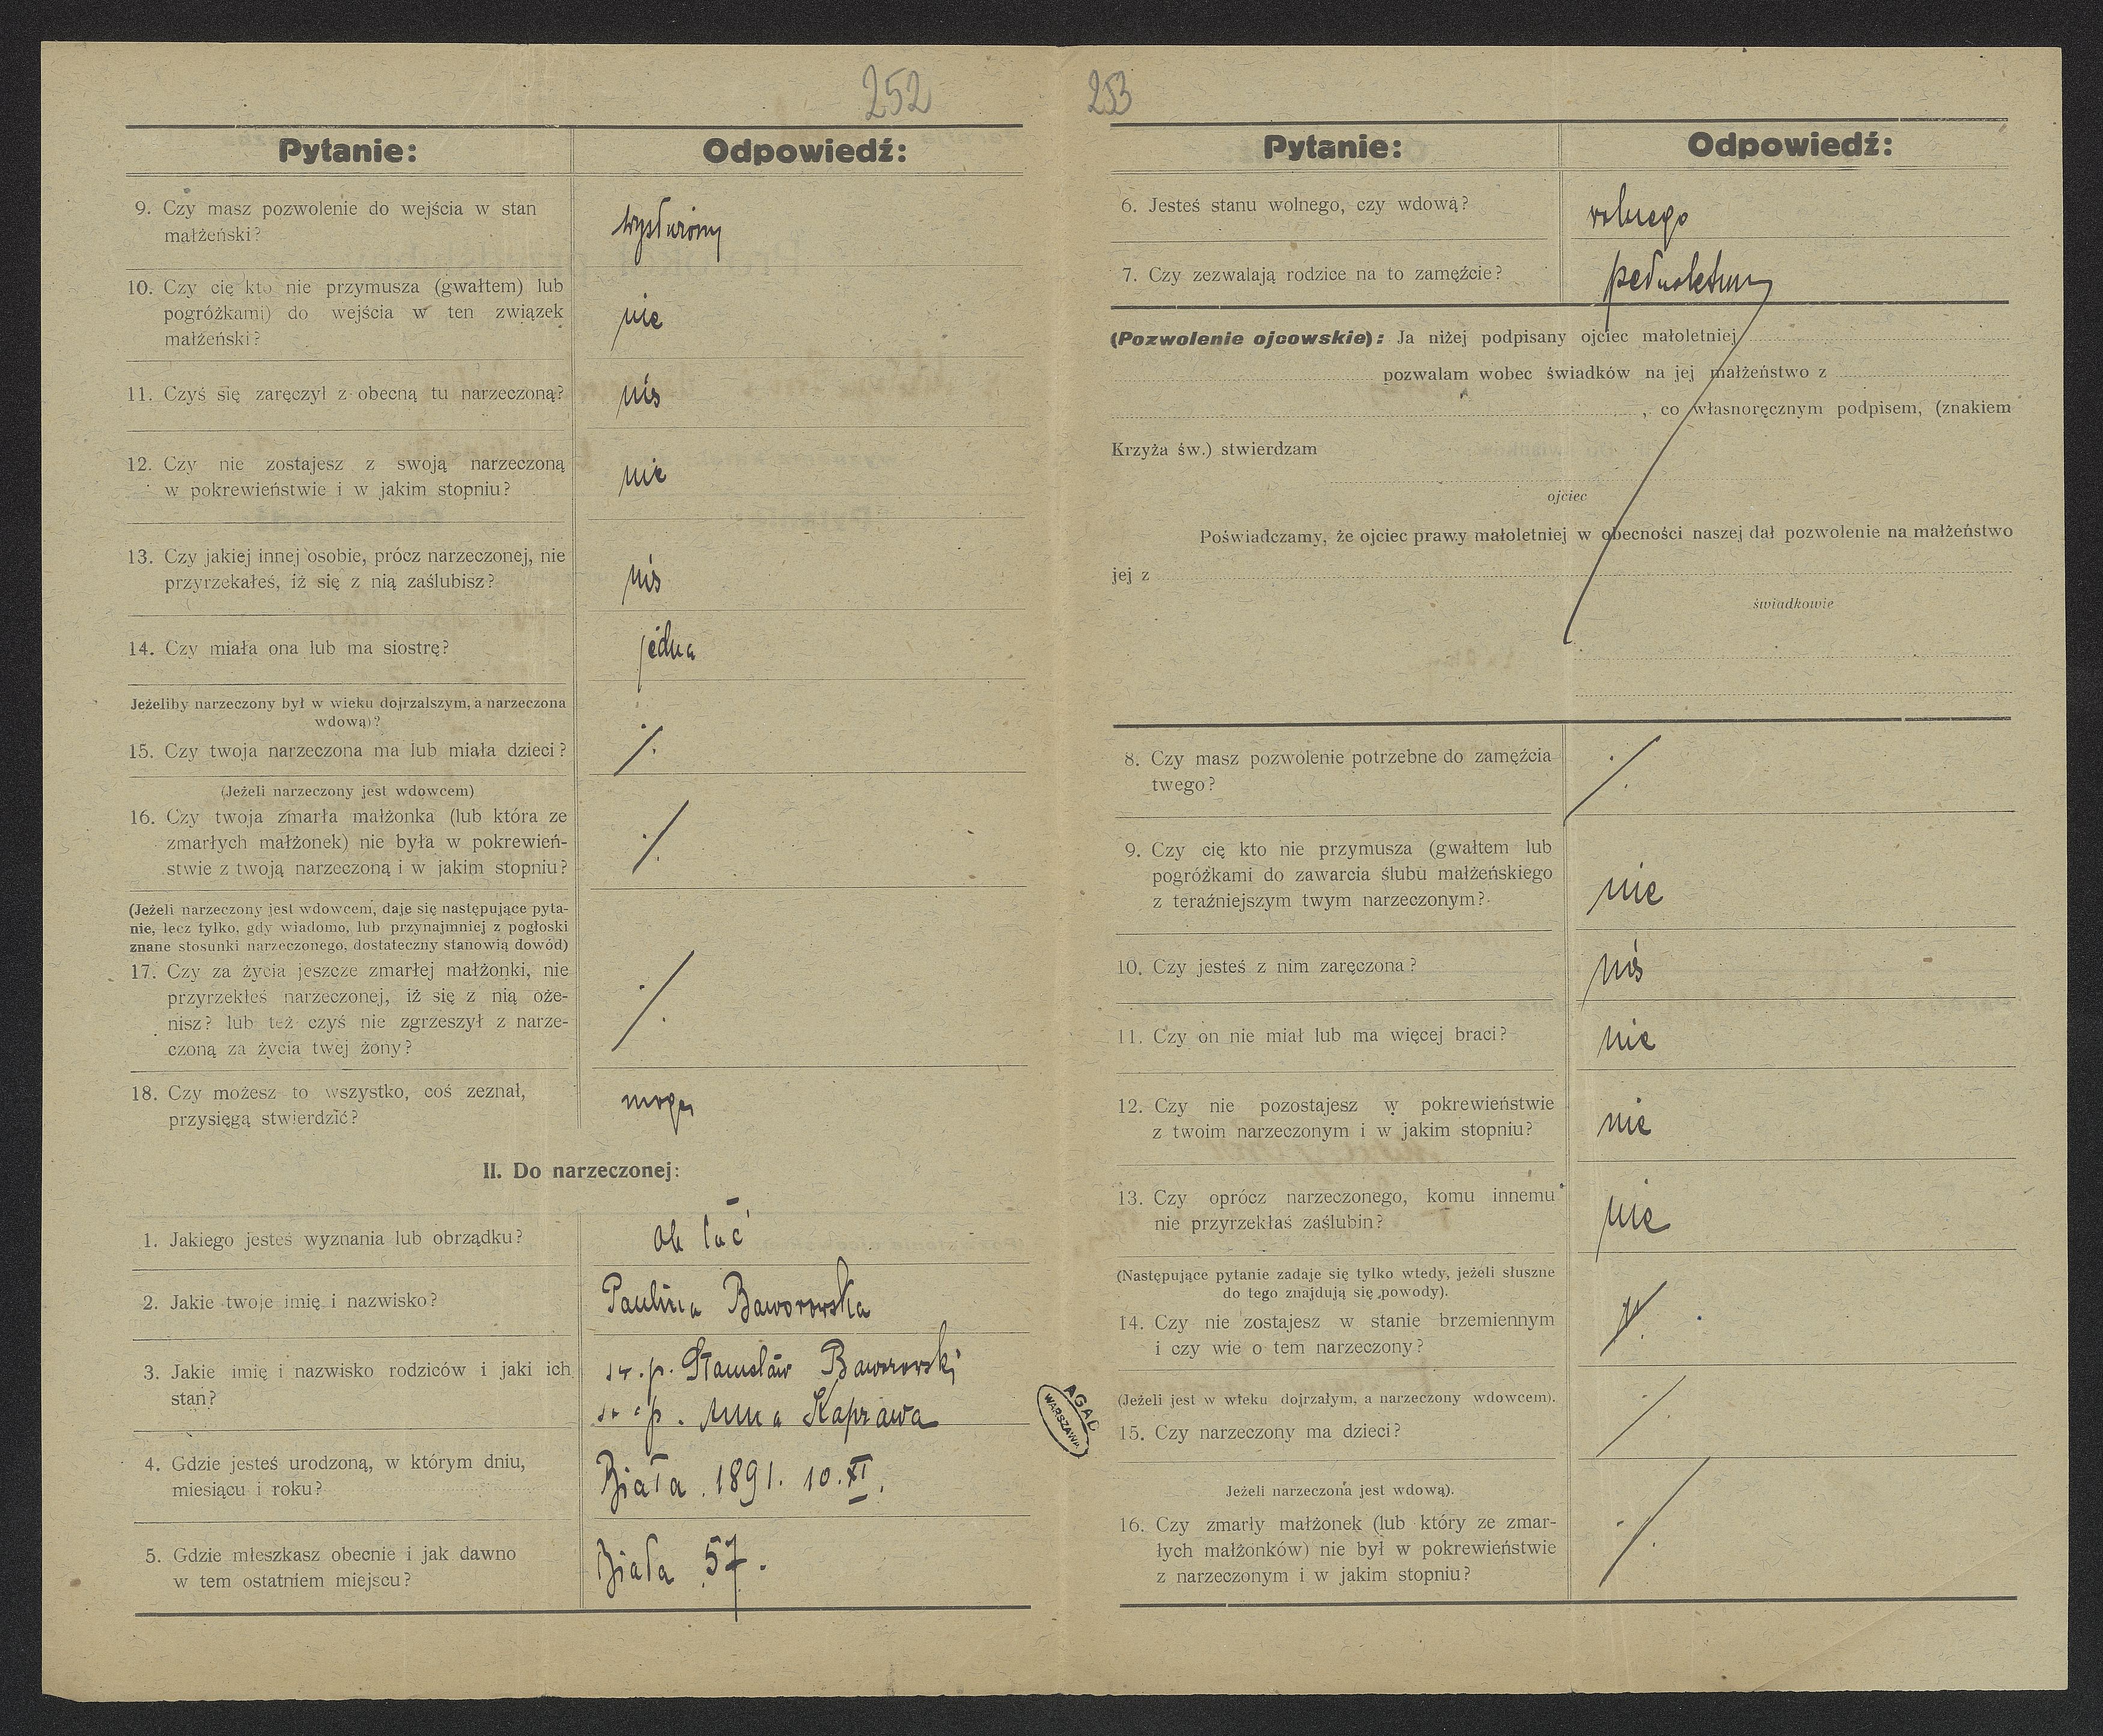 252
Pytanie:
Odpowiedź:
9. Czy masz pozwolenie do wejścia w stan
małżeński?
wysłużony
10. Czy cię kto nie przymusza (gwałtem) lub
pogróżkami) do wejścia w ten związek
małżeński?
nie
11. Czyś się zaręczył z obecną tu narzeczoną?
12. Czy nie zostajesz z swoją narzeczoną
w pokrewieństwie i w jakim stopniu?
nie
13. Czy jakiej innej osobie, prócz narzeczonej, nie
przyrzekałeś, iż się z nią zaślubisz?
14. Czy miała ona lub ma siostrę?
jedna
Jeżeliby narzeczony był w wieku dojrzalszym, a narzeczona
wdową)?
15. Czy twoja narzeczona ma lub miała dzieci?
./.
(Jeżeli narzeczony jest wdowcem)
16. Czy twoja zmarła małżonka (lub która ze
zmarłych małżonek) nie była w pokrewień-
stwie z twoją narzeczoną i w jakim stopniu?
./.
(Jeżeli narzeczony jest wdowcem, daje się następujące pyta-
nie, lecz tylko, gdy wiadomo, lub przynajmniej z pogłoski
znane stosunki narzeczonego, dostateczny stanowią dowód)
17. Czy za życia jeszcze zmarłej małżonki, nie
przyrzekłeś narzeczonej, iż się z nią oże-
nisz? lub też czyś nie zgrzeszył z narze-
czoną za życia twej żony?
./.
18. Czy możesz to wszystko, coś zeznał,
przysięgą stwierdzić?
mogę
II. Do narzeczonej:
1. Jakiego jesteś wyznania lub obrządku?
ob łać
2. Jakie twoje imię i nazwisko?
Paulina Baworowska
3. Jakie imię i nazwisko rodziców i jaki ich
stan?
św. p. Stanisław Baworowski
św. p. Anna Kaprawa
4. Gdzie jesteś urodzoną, w którym dniu,
miesiącu i roku?
Biała. 1891. 10. XI.
5. Gdzie mieszkasz obecnie i jak dawno
w tem ostatniem miejscu?
Biała 57.
AGAD
WARSZAWA
253
Pytanie:
Odpowiedź:
6. Jesteś stanu wolnego, czy wdową?
wolnego
7. Czy zezwalają rodzice na to zamęźcie?
(Pozwolenie ojcowskie): Ja niżej podpisany ojciec małoletniej
pozwalam wobec świadków na jej małżeństwo z
, co własnoręcznym podpisem, (znakiem
Krzyża św.) stwierdzam
ojciec
Poświadczamy, że ojciec prawy małoletniej w obecności naszej dał pozwolenie na małżeństwo
jej z
świadkowie
8. Czy masz pozwolenie potrzebne do zamęźcia
twego?
./.
9. Czy cię kto nie przymusza (gwałtem lub
pogróżkami do zawarcia ślubu małżeńskiego
z teraźniejszym twym narzeczonym?
nie
10. Czy jesteś z nim zaręczona?
11. Czy on nie miał lub ma więcej braci?
nie
12. Czy nie pozostajesz w pokrewieństwie
z twoim narzeczonym i w jakim stopniu?
nie
13. Czy oprócz narzeczonego, komu innemu
nie przyrzekłaś zaślubin?
nie
(Następujące pytanie zadaje się tylko wtedy, jeżeli słuszne
do tego znajdują się powody).
14. Czy nie zostajesz w stanie brzemiennym
i czy wie o tem narzeczony?
./.
(Jeżeli jest w wieku dojrzałym, a narzeczony wdowcem).
15. Czy narzeczony ma dzieci?
./.
Jeżeli narzeczona jest wdową).
16. Czy zmarły małżonek (lub który ze zmar-
łych małżonków) nie był w pokrewieństwie
z narzeczonym i w jakim stopniu?
./.